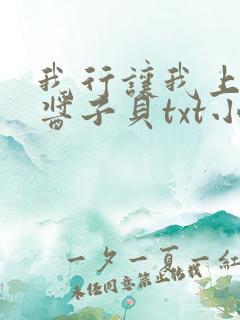 我行讓我上
醬子貝txt小
一夕一夏一紅
未經同意禁止轉載